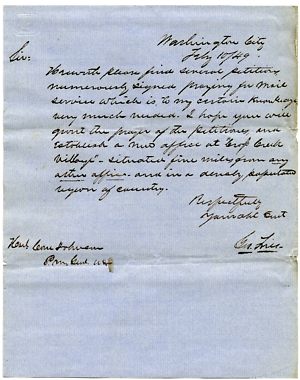 Washington City
Feby 10/49.
Sir:
Herewith please find several petitions
numerously signed praying for mail
service which is, to my certain knowledge
very much needed. I hope you will
grant the prayer of the petitioners and
establish a new office at Crop Creek
Village - situated five miles from any
other office - and in a densely populated
region of country.
Respectfully
Your obt Svt
Hon Cave Johnson
P.M. Genl. U.S.